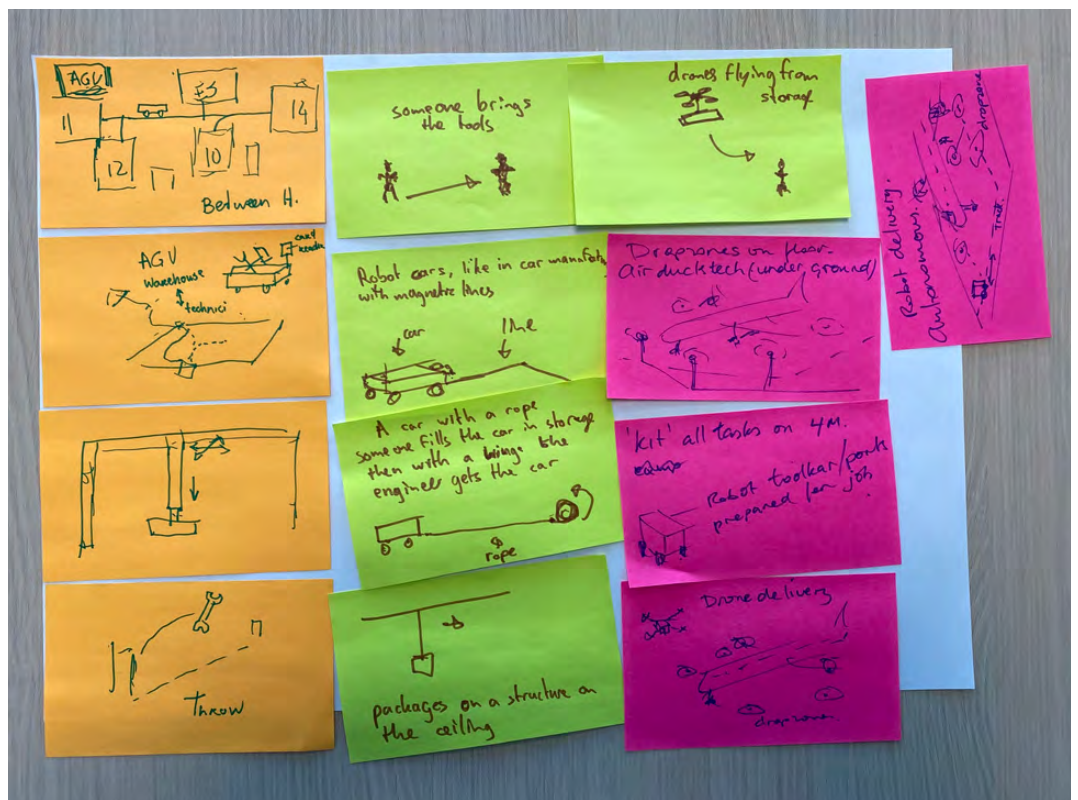 AGV
11
12
10
14
Between H.
AGV
warehouse
technici
Throw
someone brings
the tools
Robot cars, like in car manufact
with magnetic lines
car
line
A car with a rope
someone fills the car in storage
then with a the
engineer gets the car
rope
packages on a structure on
the ceiling
drones flying from
storage
Dropzones on floor.
air duck tech (under ground)
'kit' all tasks on 4M.
Robot toolkar/parts
prepared for job
Drone delivery
dropzone
Robot delivery.
dropzone